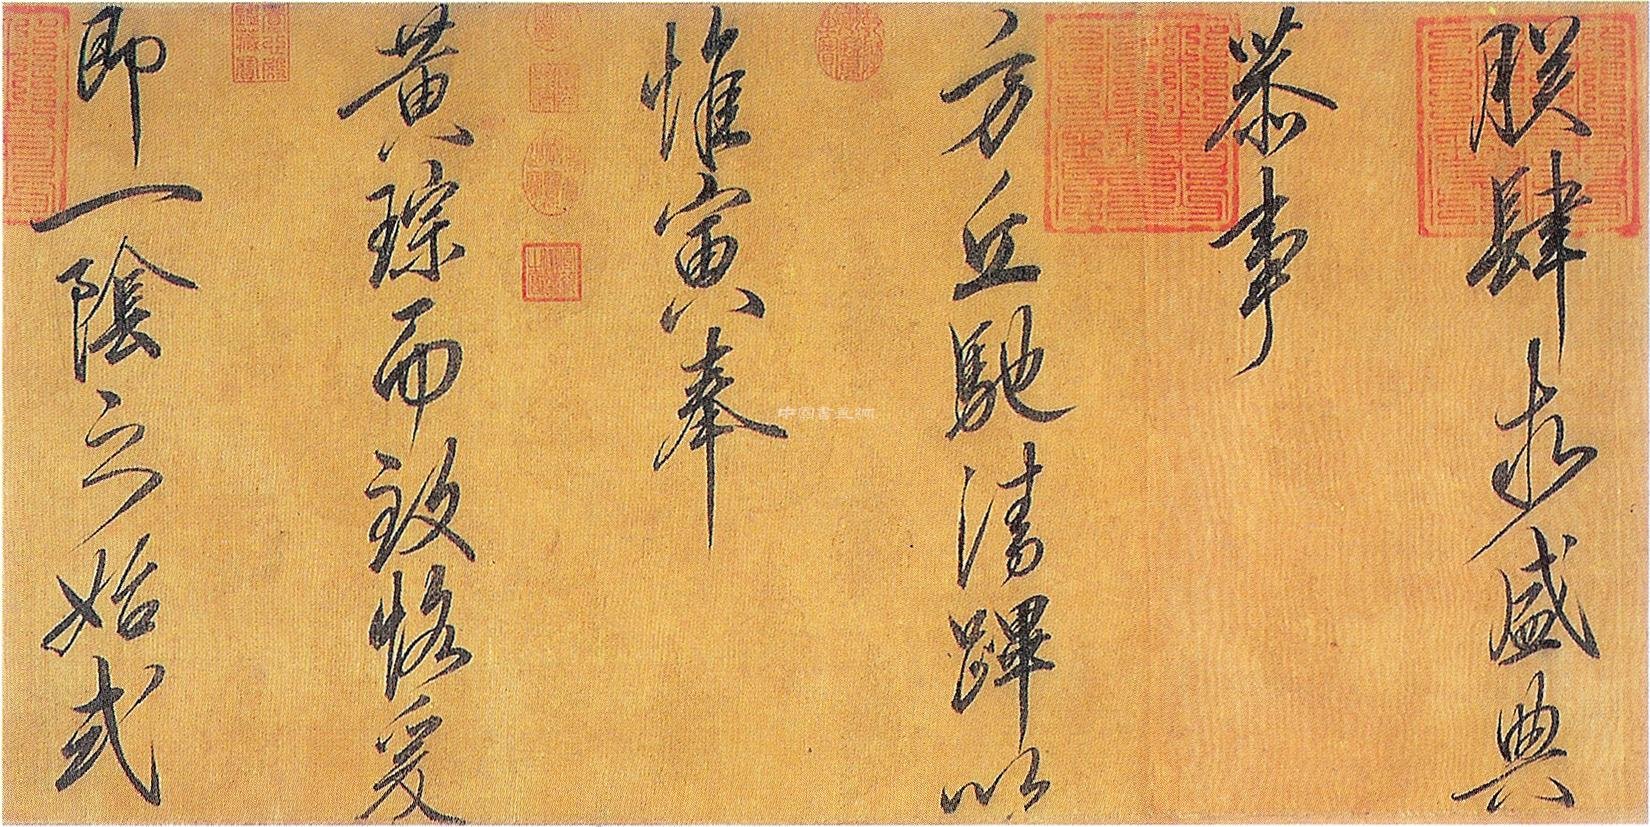 朕肆求盛典
恭事
方丘馳清蹕以
惟寅奉
黄琮而致恪爰
即一陰之始式